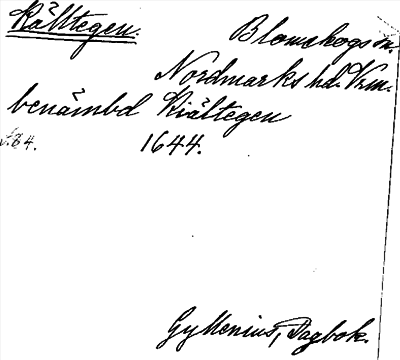 Källtegen. Blomskogs sn.
Nordmarks hd. Vrm.
benämbd Kiälltegen
s. 84. 1644.
Gyllenius, Dagbok.